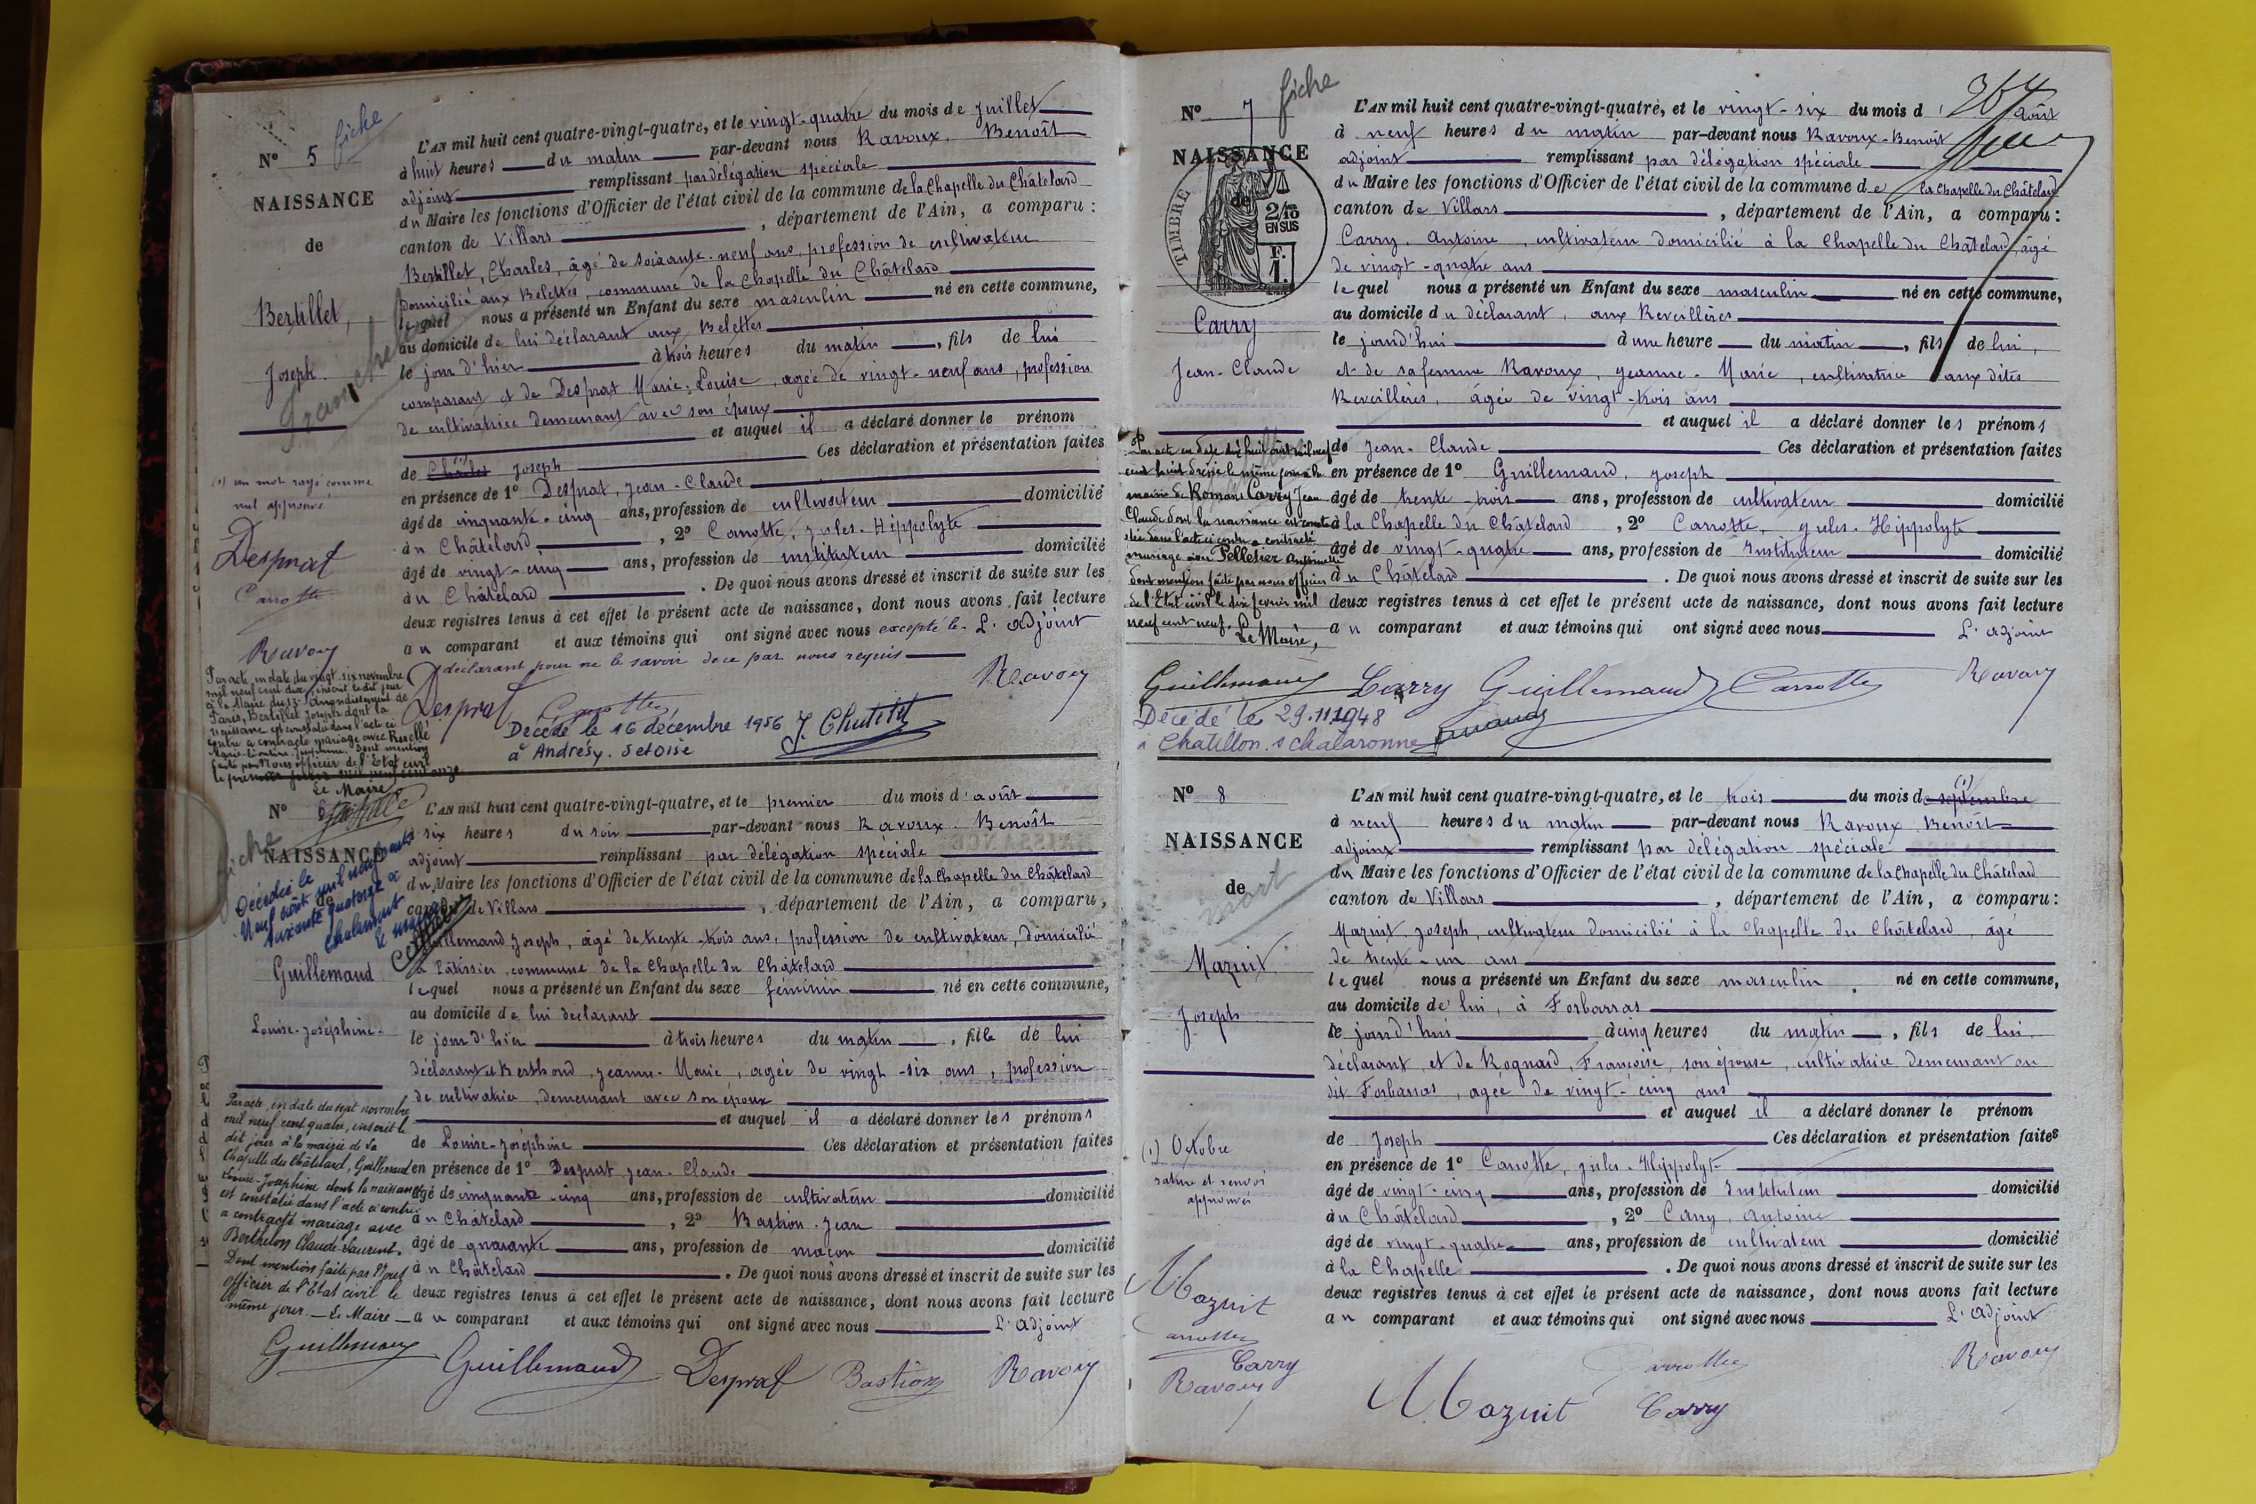 N° 5
fiche
NAISSANCE
de
Bertillet,
Joseph.
L'AN mil huit cent quatre-vingt-quatre, et le vingt-quatre du mois de Juillet
à huit heures du matin par-devant nous Ravoux, Benoît
adjoint remplissant par délégation spéciale
du Maire les fonctions d'Officier de l'état civil de la commune de la Chapelle du Châtelard
canton de Villars, département de l'Ain, a comparu :
Bertillet, Charles, âgé de soixante-neuf ans, profession de cultivateur
domicilié aux Belettes, commune de la Chapelle du Châtelard
lequel nous a présenté un Enfant du sexe masculin né en cette commune,
au domicile de lui déclarant aux Belettes
le jour d'hier à trois heures du matin, fils de lui
comparant et de Desprat Marie-Louise, agée de vingt-neuf ans, profession
de cultivatrice demeurant avec son époux
et auquel il a déclaré donner le prénom
de Charles (1) Joseph Ces déclaration et présentation faites
en présence de 1° Desprat, Jean-Claude
âgé de cinquante-cinq ans, profession de cultivateur domicilié
au Châtelard, 2° Carrotte, Jules-Hippolyte
âgé de vingt-cinq ans, profession de instituteur domicilié
au Châtelard. De quoi nous avons dressé et inscrit de suite sur les
deux registres tenus à cet effet le présent acte de naissance, dont nous avons fait lecture
au comparant et aux témoins qui ont signé avec nous excepté le L'adjoint
déclarant pour ne le savoir de ce par nous requis
(1) un mot rayé comme
nul approuvé
Desprat
Carrotte
Ravoux
Desprat Carrotte Ravoux
Décédé le 16 décembre 1956
à Andrésy. Set Oise
Par acte, en date du vingt-six novembre
mil neuf cent dix, inscrit le dit jour
à la Mairie du 13e Arrondissement de
Paris, Bertillet Joseph dont la
naissance est constatée dans l'acte ci
contre a contracté mariage avec
dont mention
faite par Nous officier de l'Etat civil
Le Maire
N° 6
fiche
NAISSANCE
de
Décédée le
neuf août mil neuf cent
soixante quatorze à
Chalamont
le maire
Guillemaud
Louise-Joséphine-
L'AN mil huit cent quatre-vingt-quatre, et le premier du mois d'août
à six heures du soir par-devant nous Ravoux Benoît
adjoint remplissant par délégation spéciale
du Maire les fonctions d'Officier de l'état civil de la commune de la Chapelle du Châtelard
canton de Villars, département de l'Ain, a comparu,
Guillemaud Joseph, âgé de trente-trois ans, profession de cultivateur, domicilié
à Pâtissier, commune de la Chapelle du Châtelard
lequel nous a présenté un Enfant du sexe féminin né en cette commune,
au domicile de lui déclarant
le jour d'hier à trois heures du matin, fille de lui
déclarant et Berthond, Jeanne-Marie, agée de vingt-six ans, profession
de cultivatrice, demeurant avec son époux
et auquel il a déclaré donner les prénoms
de Louise-Joséphine Ces déclaration et présentation faites
en présence de 1° Desprat Jean-Claude
âgé de cinquante-cinq ans, profession de cultivateur domicilié
au Châtelard, 2° Bastion-Jean
âgé de quarante ans, profession de maçon domicilié
au Châtelard. De quoi nous avons dressé et inscrit de suite sur les
deux registres tenus à cet effet le présent acte de naissance, dont nous avons fait lecture
au comparant et aux témoins qui ont signé avec nous L'adjoint
Par acte, en date du sept novembre
mil neuf cent quatre, inscrit le
dit jour à la mairie de La
Chapelle du Châtelard, Guillemaud
Louise-Joséphine dont la naissance
est constatée dans l'acte ci contre
a contracté mariage avec
Berthelon Claude-Laurent.
Dont mention faite par Nous
officier de l'Etat civil le
même jour. — Le Maire —
Guillemaud Desprat Bastion Ravoux
N° 7
fiche
NAISSANCE
de
TIMBRE
2/10
EN SUS
F.
1.
Carry
Jean-Claude
L'AN mil huit cent quatre-vingt-quatre, et le vingt-six du mois d'août
à neuf heures du matin par-devant nous Ravoux-Benoît
adjoint remplissant par délégation spéciale
du Maire les fonctions d'Officier de l'état civil de la commune de la Chapelle du Châtelard
canton de Villars, département de l'Ain, a comparu:
Carry, Antoine, cultivateur domicilié à la Chapelle du Châtelard, âgé
de vingt-quatre ans
lequel nous a présenté un Enfant du sexe masculin né en cette commune,
au domicile du déclarant, aux Reveillères
le jourd'hui à une heure du matin, fils de lui,
et de sa femme Ravoux, Jeanne-Marie, cultivatrice aux dites
Reveillères, âgée de vingt-trois ans
et auquel il a déclaré donner les prénoms
de Jean-Claude Ces déclaration et présentation faites
en présence de 1° Guillemaud, Joseph
âgé de trente-trois ans, profession de cultivateur domicilié
à la Chapelle du Châtelard, 2° Carrotte, Jules-Hippolyte
âgé de vingt-quatre ans, profession de Instituteur domicilié
au Châtelard. De quoi nous avons dressé et inscrit de suite sur les
deux registres tenus à cet effet le présent acte de naissance, dont nous avons fait lecture
au comparant et aux témoins qui ont signé avec nous L'adjoint
Par acte en date dix huit août mil neuf
cent huit dressé le même jour à la
mairie de Romans Carry Jean
Claude dont la naissance est consta
tée dans l'acte ci contre a contracté
mariage avec Pelletier
dont mention faite par nous officier
de l'Etat civil le dix février mil
neuf cent neuf.
Le Maire,
Carry Guillemaud Carrotte Ravoux
Décédé le 29.11.1948
à Chatillon. s chalaronne
N° 8
NAISSANCE
de
mort
Mazuit
Joseph
L'AN mil huit cent quatre-vingt-quatre, et le trois du mois de septembre (1)
à neuf heures du matin par-devant nous Ravoux Benoît
adjoint remplissant par délégation spéciale
du Maire les fonctions d'Officier de l'état civil de la commune de la Chapelle du Châtelard
canton de Villars, département de l'Ain, a comparu:
Mazuit, Joseph, cultivateur domicilié à la Chapelle du Châtelard, âgé
de trente-un ans
lequel nous a présenté un Enfant du sexe masculin né en cette commune,
au domicile de lui, à Forbarras
le jourd'hui à cinq heures du matin, fils de lui
déclarant, et de Rognard, Françoise, son épouse, cultivatrice demeurant au
dit Forbarras, agée de vingt-cinq ans
et auquel il a déclaré donner le prénom
de Joseph Ces déclaration et présentation faites
en présence de 1° Carrotte, Jules-Hippolyte
âgé de vingt-cinq ans, profession de Instituteur domicilié
au Châtelard, 2° Carry, Antoine
âgé de vingt-quatre ans, profession de cultivateur domicilié
à la Chapelle. De quoi nous avons dressé et inscrit de suite sur les
deux registres tenus à cet effet le présent acte de naissance, dont nous avons fait lecture
au comparant et aux témoins qui ont signé avec nous L'adjoint
(1) Octobre
rature et renvoi
approuvés
Mazuit
Carrotte
Carry
Ravoux
Mazuit Carrotte Carry Ravoux